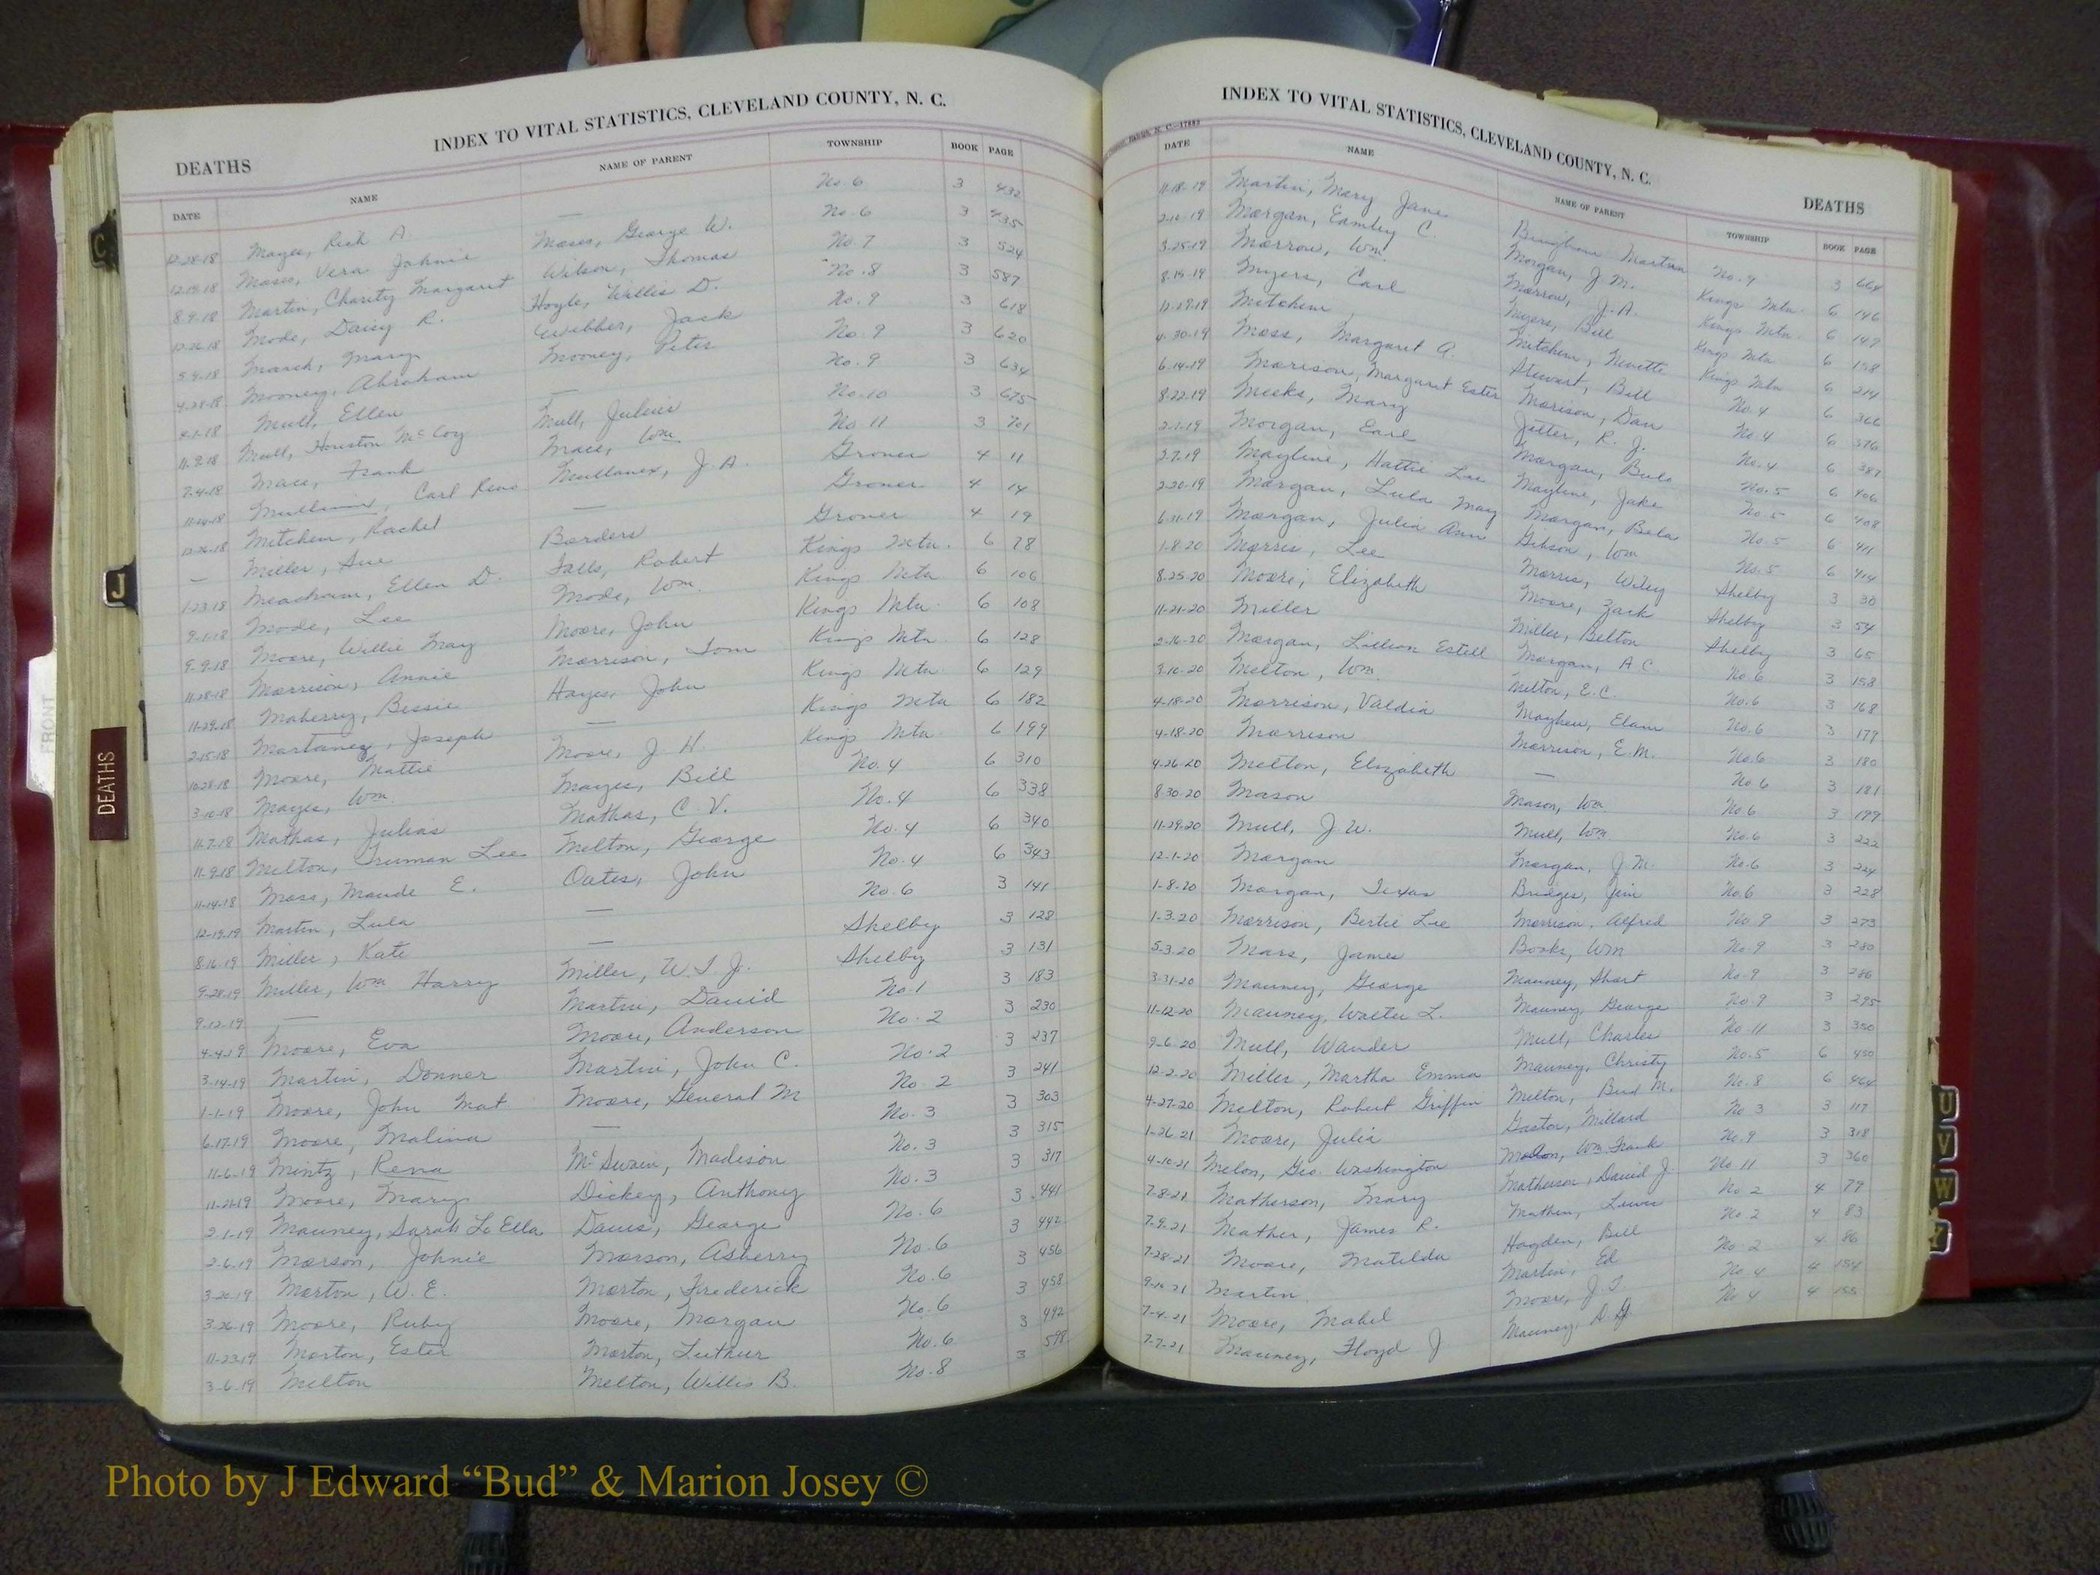 INDEX TO VITAL STATISTICS, CLEVELAND COUNTY, N. C.
DEATHS
DATE NAME NAME OF PARENT TOWNSHIP BOOK PAGE
12-28-18 Mayes, Rich A. — No. 6 3 432
12-19-18 Moses, Vera Johnie Moses, George W. No. 6 3 435
8-9-18 Martin, Charity Margaret Wilson, Thomas No. 7 3 524
12-26-18 Mode, Daisy R. Hoyle, Willis D. No. 8 3 587
5-9-18 March, Mary Webber, Jack No. 9 3 618
4-28-18 Mooney, Abraham Mooney, Peter No. 9 3 620
4-1-18 Mull, Ellen — No. 9 3 634
11-9-18 Mull, Houston McCoy Mull, Julius No. 10 3 675
7-4-18 Mace, Frank Mace, Wm No 11 3 701
11-14-18 Mullinix, Carl Reno Mullanex, J. A. Grover 4 11
12-26-18 Mitchem, Rachel — Grover 4 14
— Miller, Sue Borders Grover 4 19
1-23-18 Meacham, Ellen D. Falls, Robert Kings Mtn. 6 78
9-1-18 Mode, Lee Mode, Wm. Kings Mtn 6 106
9-9-18 Moore, Willie May Moore, John Kings Mtn. 6 108
11-28-18 Morrison, Annie Morrison, Tom Kings Mtn. 6 128
11-29-18 Maberry, Bessie Hayes, John Kings Mtn 6 129
2-15-18 Martaney, Joseph — Kings Mtn 6 182
10-28-18 Moore, Mattie Moore, J. H. Kings Mtn. 6 199
3-10-18 Mayes, Wm. Mayes, Bill No. 4 6 310
11-7-18 Mathas, Julias Mathas, C. V. No. 4 6 338
11-9-18 Melton, Truman Lee Melton, George No. 4 6 340
11-14-18 Moss, Maude E. Oates, John No. 4 6 343
12-19-19 Martin, Lula — No. 6 3 141
8-16-19 Miller, Kate — Shelby 3 128
9-28-19 Miller, Wm Harry Miller, W. T. J. Shelby 3 131
9-12-19 — Martin, David No. 1 3 183
4-4-19 Moore, Eva Moore, Anderson No. 2 3 230
3-14-19 Martin, Donner Martin, John C. No. 2 3 237
1-1-19 Moore, John Mat Moore, General M No. 2 3 241
6-17-19 Moore, Malina — No. 3 3 303
11-6-19 Mintz, Rena McSwain, Madison No. 3 3 315
11-21-19 Moore, Mary Dickey, Anthony No. 3 3 317
2-1-19 Mauney, Sarah Lo Ella Davis, George No. 6 3 441
2-6-19 Morson, Johnie Morson, Asberry No. 6 3 442
3-20-19 Morton, W. E. Morton, Frederick No. 6 3 456
3-26-19 Moore, Ruby Moore, Morgan No. 6 3 458
11-23-19 Morton, Ester Morton, Luthur No. 6 3 492
3-6-19 Melton Melton, Willis B. No. 8 3 598
INDEX TO VITAL STATISTICS, CLEVELAND COUNTY, N. C.
DEATHS
DATE NAME NAME OF PARENT TOWNSHIP BOOK PAGE
11-18-19 Martin, Mary Jane Martin No. 9 3 664
2-10-19 Morgan, C Morgan, J. M. Kings Mtn. 6 146
3-25-19 Morrow, Wm. Morrow, J. A. Kings Mtn. 6 149
8-15-19 Myers, Carl Myers, Bill Kings Mtn 6 158
12-17-19 Mitchem Mitchem, Kings Mtn 6 214
4-30-19 Moss, Margaret A. Stewart, Bill No. 4 6 366
6-14-19 Morison, Margaret Ester Morison, Dan No. 4 6 376
8-22-19 Meeks, Mary Jeter, R. J. No. 4 6 387
2-1-19 Morgan, Earl Morgan, Bulo No. 5 6 406
2-7-19 Mayline, Hattie Lee Mayline, Jake No. 5 6 408
2-20-19 Morgan, Lula May Morgan, Bela No. 5 6 411
6-31-19 Morgan, Julia Ann Gibson, Wm No. 5 6 414
1-8-20 Morris, Lee Morris, Wiley Shelby 3 30
8-25-20 Moore, Elizabeth Moore, Zack Shelby 3 54
11-21-20 Miller Miller, Belton Shelby 3 65
2-16-20 Morgan, Lillian Estell Morgan, A C. No. 6 3 158
3-10-20 Melton, Wm. Melton, E. C. No. 6 3 168
4-18-20 Morrison, Valdia Mayhew, Elam No. 6 3 177
4-18-20 Morrison Morrison, E. M. No. 6 3 180
4-26-20 Melton, Elizabeth — No 6 3 181
8-30-20 Mason Mason, Wm No. 6 3 199
11-29-20 Mull, J. W. Mull, Wm. No. 6 3 222
12-1-20 Morgan Morgan, J. M. No. 6 3 224
1-8-20 Morgan, Texas Bridges, Jim No. 6 3 228
1-3-20 Morrison, Bertie Lee Morrison, Alfred No 9 3 273
5-3-20 Mars, James Books, Wm No. 9 3 280
3-31-20 Mauney, George Mauney, Short No. 9 3 286
11-12-20 Mauney, Walter L. Mauney, George No. 9 3 295
9-6-20 Mull, Wander Mull, Charles No 11 3 350
12-2-20 Miller, Martha Emma Mauney, Christy No. 5 6 450
4-27-20 Melton, Robert Griffin Melton, Bud M. No. 8 6 464
1-26-21 Moore, Julia Gaston, Millard No 3 3 117
4-10-21 Melon, Geo. Washington Wm. Frank No. 9 3 318
7-8-21 Matherson, Mary Matherson, David J. No 11 3 360
7-9-21 Mather, James R. No 2 4 79
7-28-21 Moore, Matilda Hogden, Bill No 2 4 83
9-10-21 Martin Martin, Ed No 2 4 86
7-4-21 Moore, Mabel Moore, J T No 4 4 154
7-7-21 Mauney, Floyd J Mauney, No 4 4 155
C
J
DEATHS
FRONT
U
V
W
Photo by J Edward “Bud” & Marion Josey ©